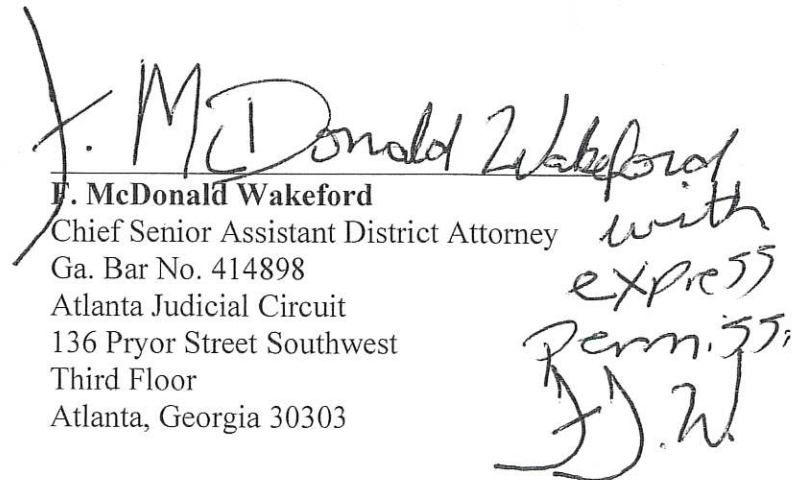 F. McDonald Wakeford
with
express
Permiss.
F. McDonald Wakeford
Chief Senior Assistant District Attorney
Ga. Bar No. 414898
Atlanta Judicial Circuit
136 Pryor Street Southwest
Third Floor
Atlanta, Georgia 30303